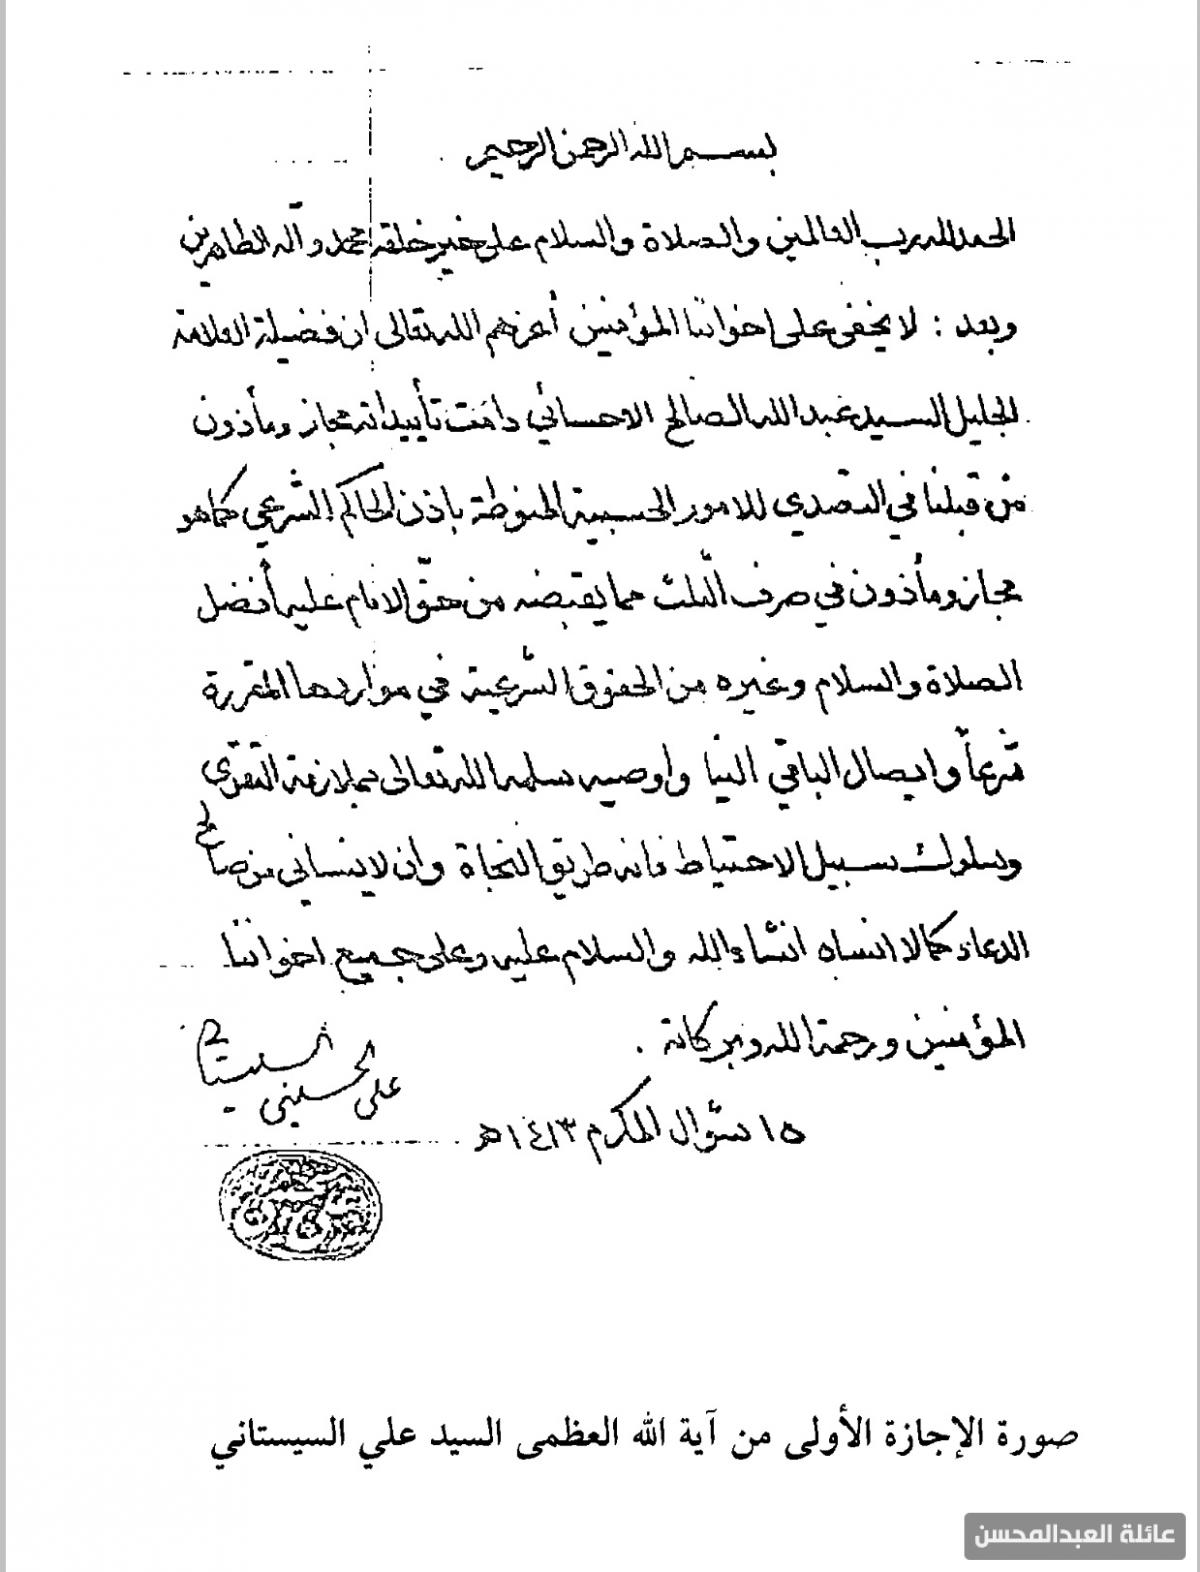 بسم الله الرحمن الرحيم
الحمد لله رب العالمين والصلاة والسلام على خير خلقه محمد وآله الطاهرين
وبعد : لا يخفى على اخواننا المؤمنين أعزهم الله تعالى ان فضيلة العلامة
الجليل السيد عبد الله الصالح الاحسائي دامت تأييداته مجاز ومأذون
من قبلنا في التصدي للامور الحسبية المنوطة باذن الحاكم الشرعي كما هو
مجاز ومأذون في صرف الثلث مما يقبضه من حق الامام عليه أفضل
الصلاة والسلام وغيره من الحقوق الشرعية في مواردها المقررة
شرعاً وايصال الباقي الينا واوصيه سلمه الله تعالى بملازمة التقوى
وسلوك سبيل الاحتياط فانه طريق النجاة وان لا ينساني من صالح
الدعاء كما لا انساه انشاء الله والسلام عليه وعلى جميع اخواننا
المؤمنين ورحمة الله وبركاته .
علي الحسيني السيستاني
١٥ شوال المكرم ١٤١٣هـ
صورة الإجازة الأولى من آية الله العظمى السيد علي السيستاني
عائلة العبدالمحسن